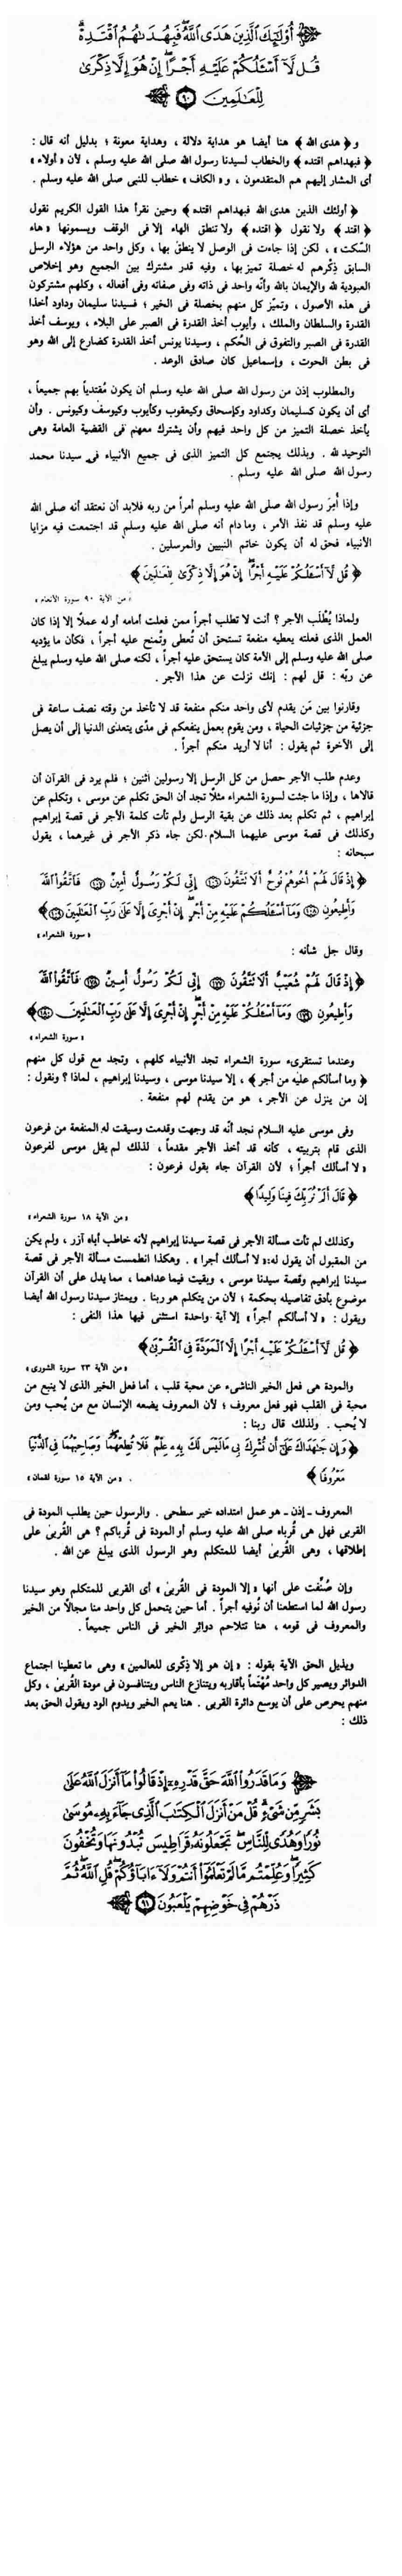 أُوْلَٰٓئِكَ ٱلَّذِينَ هَدَى ٱللَّهُ فَبِهُدَىٰهُمُ ٱقْتَدِهْ
قُل لَّآ أَسْـَٔلُكُمْ عَلَيْهِ أَجْرًا إِنْ هُوَ إِلَّا ذِكْرَىٰ
لِلْعَٰلَمِينَ ٩٠
و ﴿ هدى الله ﴾ هنا أيضا هو هداية دلالة ، وهداية معونة ؛ بدليل أنه قال :
﴿ فبهداهم اقتده ﴾ والخطاب لسيدنا رسول الله صلى الله عليه وسلم ، لأن « أولاء »
أى المشار إليهم هم المتقدمون ، و « الكاف » خطاب للنبى صلى الله عليه وسلم .
﴿ أولئك الذين هدى الله فبهداهم اقتده ﴾ وحين نقرأ هذا القول الكريم نقول
﴿ اقتد ﴾ ولا نقول ﴿ اقتده ﴾ ولا تنطق الهاء إلا فى الوقف ويسمونها « هاء
السّكت » ، لكن إذا جاءت فى الوصل لا ينطق بها ، وكل واحد من هؤلاء الرسل
السابق ذِكْرهم له خصلة تميز بها ، وفيه قدر مشترك بين الجميع وهو إخلاص
العبودية لله والإيمان بالله وأنّه واحد فى ذاته وفى صفاته وفى أفعاله ، وكلهم مشتركون
فى هذه الأصول ، وتميّز كل منهم بخصلة فى الخير ؛ فسيدنا سليمان وداود أخذا
القدرة والسلطان والملك ، وأيوب أخذ القدرة فى الصبر على البلاء ، ويوسف أخذ
القدرة فى الصبر والتفوق فى الحُكم ، وسيدنا يونس أخذ القدرة كضارع إلى الله وهو
فى بطن الحوت ، وإسماعيل كان صادق الوعد .
والمطلوب إذن من رسول الله صلى الله عليه وسلم أن يكون مُقتدياً بهم جميعاً ،
أى أن يكون كسليمان وكداود وكإسحاق وكيعقوب وكأيوب وكيوسف وكيونس . وأن
يأخذ خصلة التميز من كل واحد فيهم وأن يشترك معهم فى القضية العامة وهى
التوحيد لله . وبذلك يجتمع كل التميز الذى فى جميع الأنبياء فى سيدنا محمد
رسول الله صلى الله عليه وسلم .
وإذا أُمِرَ رسول الله صلى الله عليه وسلم أمراً من ربه فلابد أن نعتقد أنه صلى الله
عليه وسلم قد نفذ الأمر ، وما دام أنه صلى الله عليه وسلم قد اجتمعت فيه مزايا
الأنبياء فحق له أن يكون خاتم النبيين والمرسلين .
﴿ قُل لَّآ أَسْـَٔلُكُمْ عَلَيْهِ أَجْرًا إِنْ هُوَ إِلَّا ذِكْرَىٰ لِلْعَٰلَمِينَ ﴾
« من الآية ٩٠ سورة الأنعام »
ولماذا يُطْلَب الأجر ؟ أنت لا تطلب أجراً ممن فعلت أمامه أو له عملًا إلا إذا كان
العمل الذى فعلته يعطيه منفعة تستحق أن تُعطى وتُمنح عليه أجراً ، فكأن ما يؤديه
صلى الله عليه وسلم إلى الأمة كان يستحق عليه أجراً ، لكنه صلى الله عليه وسلم يبلغ
عن ربّه : قل لهم : إنك نزلت عن هذا الأجر .
وقارنوا بين مَن يقدم لأى واحد منكم منفعة قد لا تأخذ من وقته نصف ساعة فى
جزئية من جزئيات الحياة ، ومن يقوم بعمل ينفعكم فى مدًى يتعدى الدنيا إلى أن يصل
إلى الآخرة ثم يقول : أنا لا أريد منكم أجراً .
وعدم طلب الأجر حصل من كل الرسل إلا رسولين اثنين ؛ فلم يرد فى القرآن أن
قالاها ، وإذا ما جئت لسورة الشعراء مثلًا تجد أن الحق تكلم عن موسى ، وتكلم عن
إبراهيم ، ثم تكلم بعد ذلك عن بقية الرسل ولم تأت كلمة الأجر فى قصة إبراهيم
وكذلك فى قصة موسى عليهما السلام لكن جاء ذكر الأجر فى غيرهما ، يقول
سبحانه :
﴿ إِذْ قَالَ لَهُمْ أَخُوهُمْ نُوحٌ أَلَا تَتَّقُونَ ١٠٦ إِنِّي لَكُمْ رَسُولٌ أَمِينٌ ١٠٧ فَاتَّقُوا۟ ٱللَّهَ
وَأَطِيعُونِ ١٠٨ وَمَآ أَسْـَٔلُكُمْ عَلَيْهِ مِنْ أَجْرٍ إِنْ أَجْرِىَ إِلَّا عَلَىٰ رَبِّ ٱلْعَٰلَمِينَ ١٠٩ ﴾
« سورة الشعراء »
وقال جل شأنه :
﴿ إِذْ قَالَ لَهُمْ شُعَيْبٌ أَلَا تَتَّقُونَ ١٧٧ إِنِّي لَكُمْ رَسُولٌ أَمِينٌ ١٧٨ فَٱتَّقُوا۟ ٱللَّهَ
وَأَطِيعُونِ ١٧٩ وَمَآ أَسْـَٔلُكُمْ عَلَيْهِ مِنْ أَجْرٍ إِنْ أَجْرِىَ إِلَّا عَلَىٰ رَبِّ ٱلْعَٰلَمِينَ ١٨٠ ﴾
« سورة الشعراء »
وعندما تستقرىء سورة الشعراء تجد الأنبياء كلهم ، وتجد مع قول كل منهم
﴿ وما أسألكم عليه من أجر ﴾ ، إلا سيدنا موسى ، وسيدنا إبراهيم ، لماذا ؟ ونقول :
إن من ينزل عن الأجر ، هو من يقدم لهم منفعة .
وفى موسى عليه السلام نجد أنّه قد وجهت وقدمت وسيقت له المنفعة من فرعون
الذى قام بتربيته ، كأنه قد أخذ الأجر مقدماً ، لذلك لم يقل موسى لفرعون
« لا أسألك أجراً » ؛ لأن القرآن جاء بقول فرعون :
﴿ قَالَ أَلَمْ نُرَبِّكَ فِينَا وَلِيدًا ﴾
« من الآية ١٨ سورة الشعراء »
وكذلك لم تأت مسألة الأجر فى قصة سيدنا إبراهيم لأنه خاطب أباه آزر ، ولم يكن
من المقبول أن يقول له: « لا أسألك أجرا » . وهكذا انطمست مسألة الأجر فى قصة
سيدنا إبراهيم وقصة سيدنا موسى ، وبقيت فيما عداهما ، مما يدل على أن القرآن
موضوع بأدق تفاصيله بحكمة ؛ لأن من يتكلم هو ربنا . ويمتاز سيدنا رسول الله أيضا
ويقول : « لا أسألكم أجراً » إلا آية واحدة استثنى فيها هذا النفى :
﴿ قُل لَّآ أَسْـَٔلُكُمْ عَلَيْهِ أَجْرًا إِلَّا ٱلْمَوَدَّةَ فِى ٱلْقُرْبَىٰ ﴾
« من الآية ٢٣ سورة الشورى »
والمودة هى فعل الخير الناشىء عن محبة قلب ، أما فعل الخير الذى لا ينبع من
محبة فى القلب فهو فعل معروف ؛ لأن المعروف يضعه الإنسان مع من يُحب ومن
لا يُحب . ولذلك قال ربنا :
﴿ وَإِن جَٰهَدَاكَ عَلَىٰٓ أَن تُشْرِكَ بِى مَا لَيْسَ لَكَ بِهِۦ عِلْمٌ فَلَا تُطِعْهُمَا وَصَاحِبْهُمَا فِى ٱلدُّنْيَا
مَعْرُوفًا ﴾ « من الآية ١٥ سورة لقمان »
المعروف - إذن - هو عمل امتداده خير سطحى . والرسول حين يطلب المودة فى
القربى فهل هى قُرباه صلى الله عليه وسلم أو المودة فى قُرباكم ؟ هى القُربىٰ على
إطلاقها ، وهى القُربىٰ أيضا للمتكلم وهو الرسول الذى يبلغ عن الله .
وإن صُنِّفت على أنها « إلا المودة فى القُربىٰ » أى القربى للمتكلم وهو سيدنا
رسول الله لما استطعنا أن نُوفيه أجراً . أما حين يتحمل كل واحد منا مجالًا من الخير
والمعروف فى قومه ، هنا تتلاحم دوائر الخير فى الناس جميعاً .
ويذيل الحق الآية بقوله : « إن هو إلا ذِكْرى للعالمين » وهى ما تعطينا اجتماع
الدوائر ويصير كل واحد مُهْتَماً بأقاربه ويتنازع الناس ويتنافسون فى مودة القُربىٰ ، وكل
منهم يحرص على أن يوسع دائرة القربى . هنا يعم الخير ويدوم الود ويقول الحق بعد
ذلك :
وَمَا قَدَرُوا۟ ٱللَّهَ حَقَّ قَدْرِهِۦٓ إِذْ قَالُوا۟ مَآ أَنزَلَ ٱللَّهُ عَلَىٰ
بَشَرٍ مِّن شَىْءٍ قُلْ مَنْ أَنزَلَ ٱلْكِتَٰبَ ٱلَّذِى جَآءَ بِهِۦ مُوسَىٰ
نُورًا وَهُدًى لِّلنَّاسِ تَجْعَلُونَهُۥ قَرَاطِيسَ تُبْدُونَهَا وَتُخْفُونَ
كَثِيرًا وَعُلِّمْتُم مَّا لَمْ تَعْلَمُوٓا۟ أَنتُمْ وَلَآ ءَابَآؤُكُمْ قُلِ ٱللَّهُ ثُمَّ
ذَرْهُمْ فِى خَوْضِهِمْ يَلْعَبُونَ ٩١